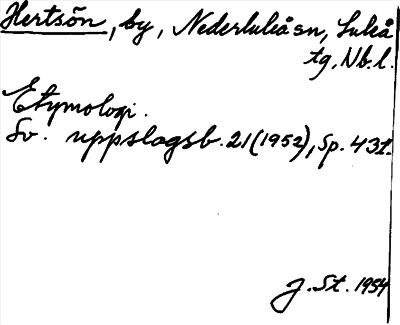 Hertsön, by, Nederluleå sn, Luleå
tg, Nb. l.
Etymologi.
Sv. uppslagsb. 21 (1952), sp. 431.
J. St. 1954